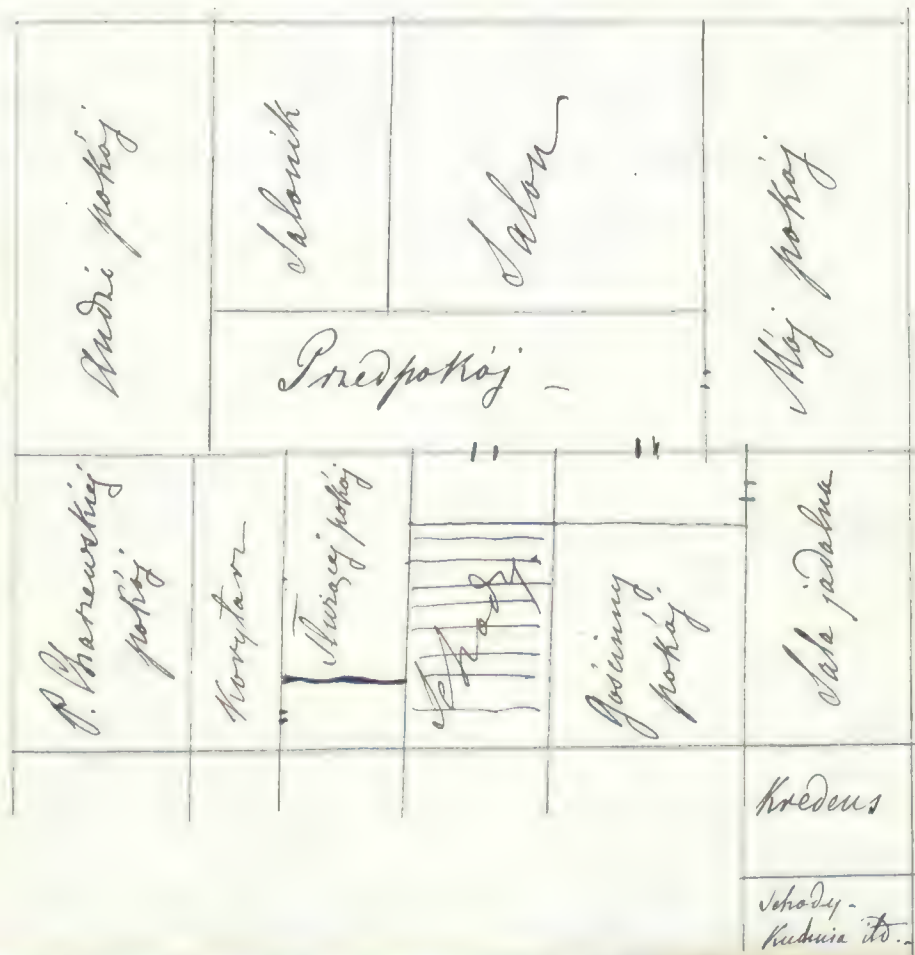 Andzi pokój
Salonik
Salon
Mój pokój
Przedpokój -
P. Charzewskiéj
pokój
Korytarz
Służącej pokój
Schody
Gościnny
pokój
Sala jadalna
Kredens
Schody -
Kuchnia itd. -